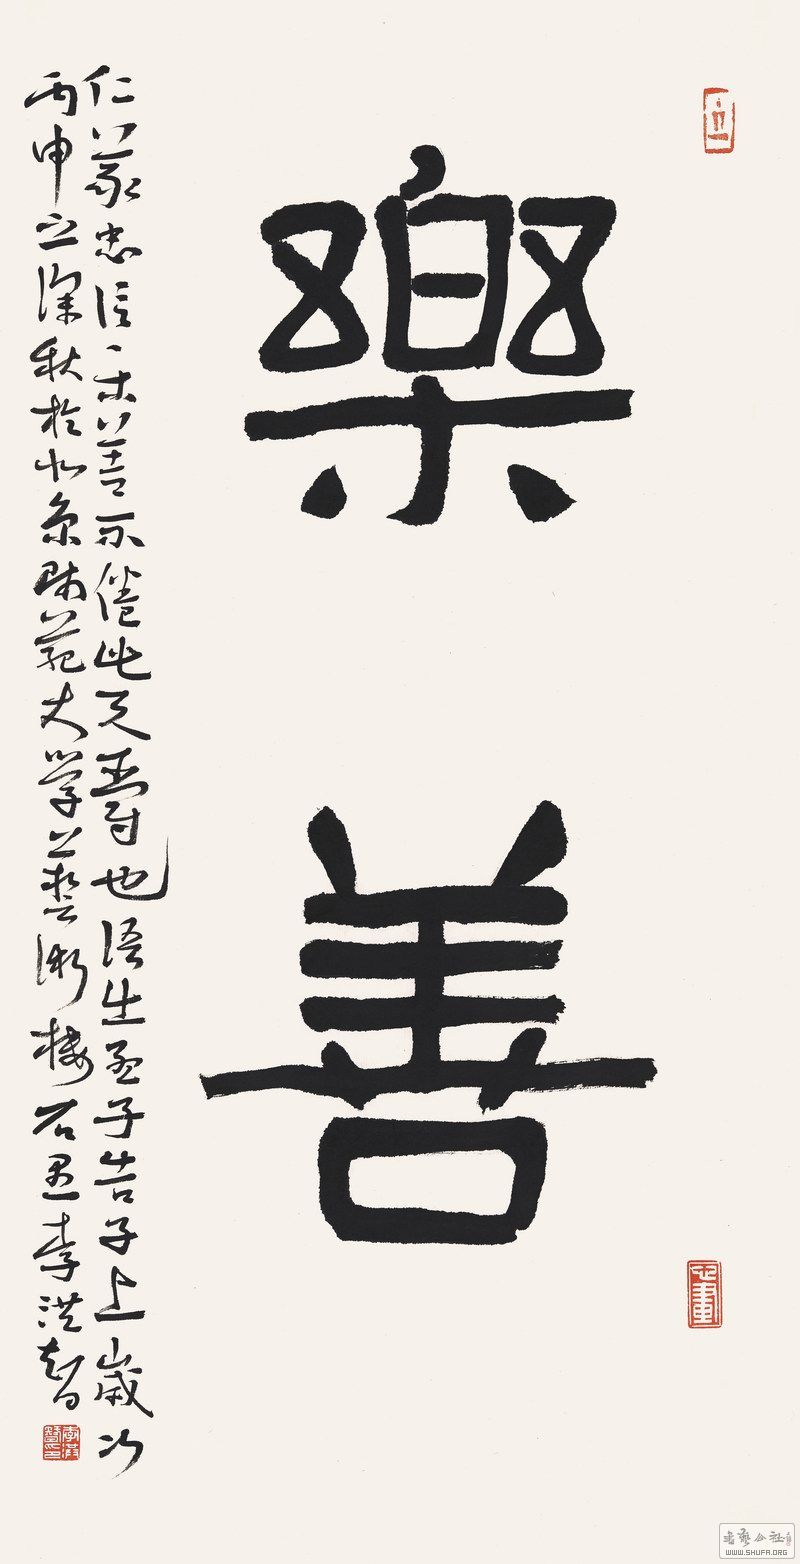 樂善
仁義忠信樂善不倦此天爵也語出孟子告子上歲次
丙申之深秋於北京師範大學之藝術樓石邑李洪智
書藝公社
WWW.SHUFA.ORG